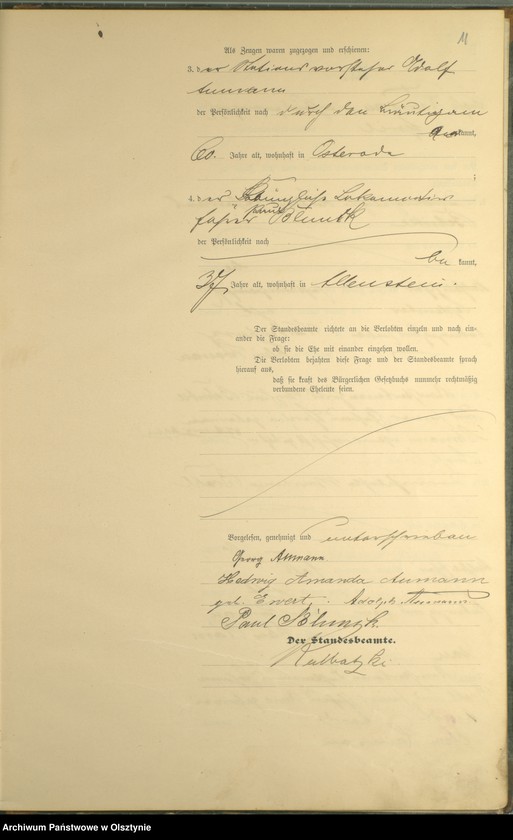 11
Als Zeugen waren zugezogen und erschienen:
3. der Stationsvorsteher Adolf
Aumann
der Persönlichkeit nach durch den Bräutigam
kannt,
60. Jahre alt, wohnhaft in Osterode
;
4. der Königliche Lokomotiv
führer Paul
der Persönlichkeit nach
be kannt,
37 Jahre alt, wohnhaft in Allenstein.
Der Standesbeamte richtete an die Verlobten einzeln und nach ein-
ander die Frage:
ob sie die Ehe mit einander eingehen wollen.
Die Verlobten bejahten diese Frage und der Standesbeamte sprach
hierauf aus,
daß sie kraft des Bürgerlichen Gesetzbuchs nunmehr rechtmäßig
verbundene Eheleute seien.
Vorgelesen, genehmigt und unterschrieben
Georg Aumann
Hedwig Amanda Aumann
geb. Ewert. Adolph Aumann
Paul
Der Standesbeamte.
Archiwum Państwowe w Olsztynie